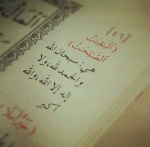 [٤٦]
﴿وَالْبَاقِيَاتُ
الصَّالِحَاتُ﴾
هي: سبحان الله
والحمد لله، ولا
إله إلا الله، والله
أكبر